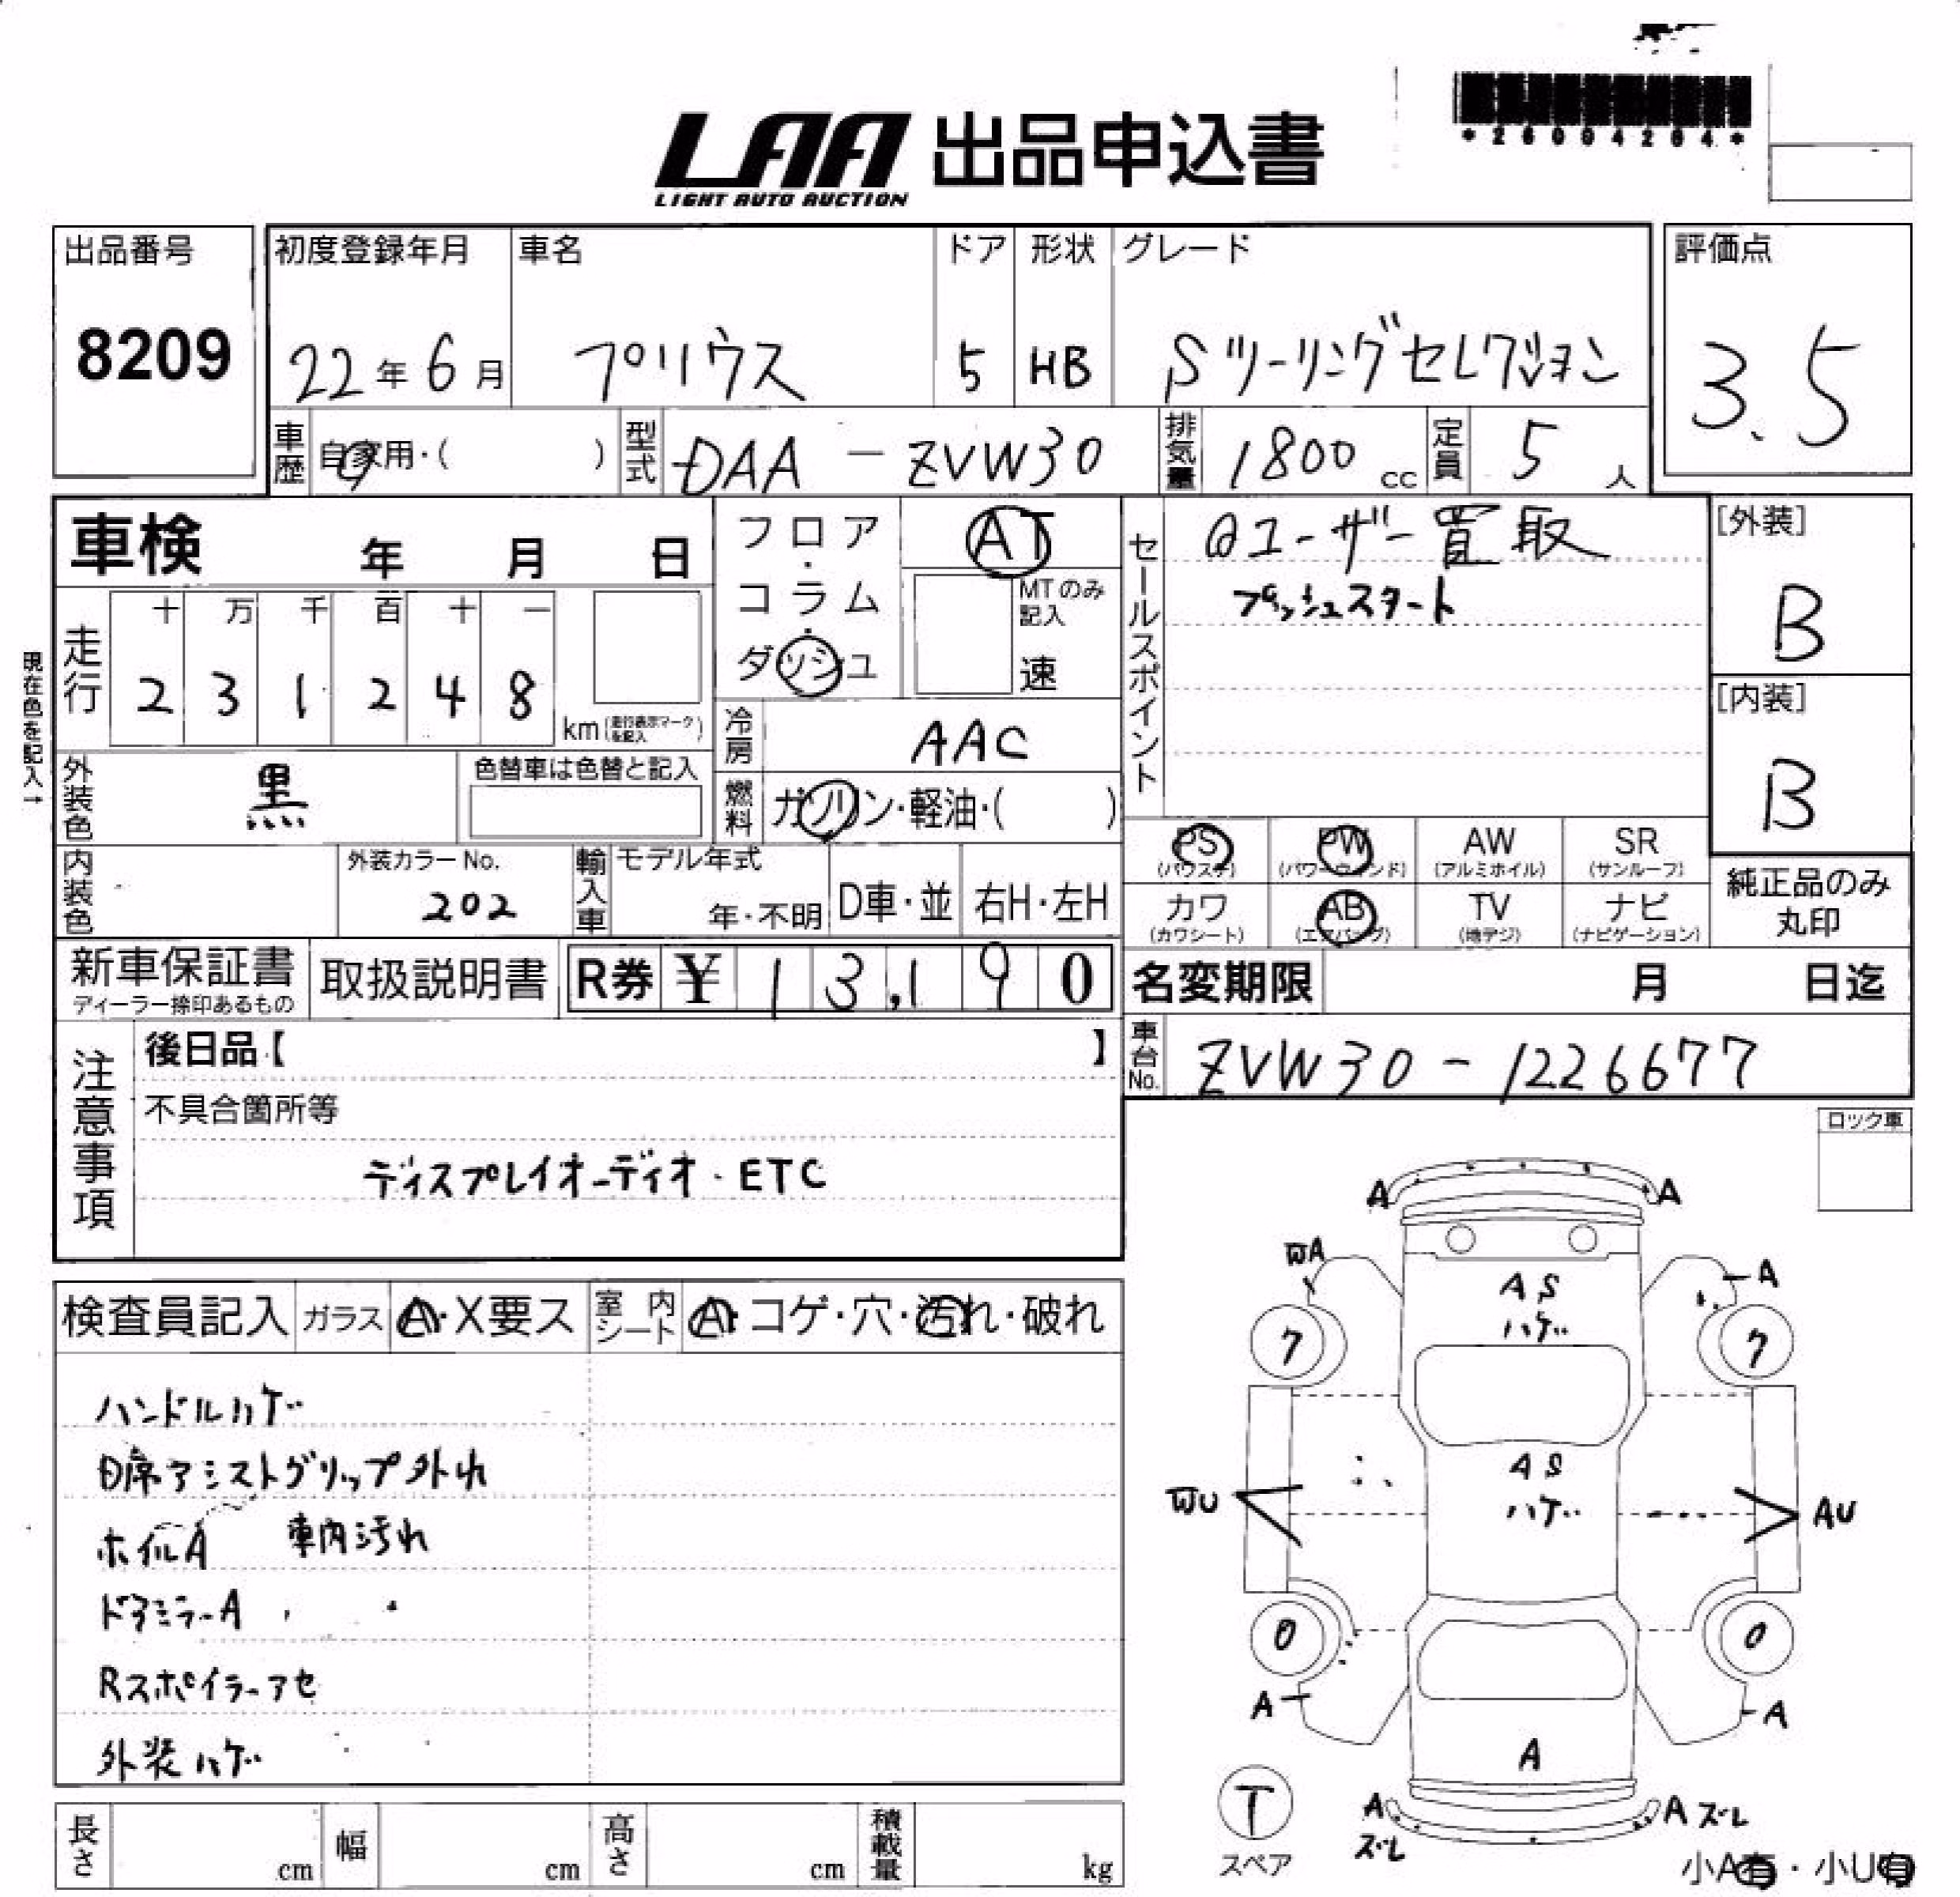 *26004204*
LAA 出品申込書
LIGHT AUTO AUCTION
出品番号 初度登録年月 車名 ドア 形状 グレード 評価点
8209 22年6月 プリウス 5 HB Sツーリングセレクション 3.5
車歴 自家用・( ) 型式 DAA-ZVW30 排気量 1800cc 定員 5人
車検 年 月 日
フロア・コラム・ダッシュ
AT
MTのみ記入
速
セールスポイント
ユーザー買取
プッシュスタート
[外装]
B
[内装]
B
現在色を記入→
走行 十 万 千 百 十 一
2 3 1 2 4 8 km(走行表示マークを記入)
冷房 AAC
外装色 黒 色替車は色替と記入
燃料 ガソリン・軽油・( )
PS PW AW SR
(パワステ) (パワーウィンド) (アルミホイル) (サンルーフ)
内装色 外装カラーNo. 202 輸入車 モデル年式 年・不明 D車・並 右H・左H
カワ AB TV ナビ
(カワシート) (エアバッグ) (地デジ) (ナビゲーション)
純正品のみ
丸印
新車保証書 取扱説明書 R券 ¥ 13,190
ディーラー捺印あるもの
名変期限 月 日迄
注意事項 後日品【 】
車台No. ZVW30-1226677
不具合箇所等
ディスプレイオーディオ・ETC
ロック車
検査員記入 ガラス A・X要ス 室内シート A・コゲ・穴・汚れ・破れ
ハンドルハゲ
席アシストグリップ外れ
ホイルA 車内汚れ
ドアミラーA
Rスポイラーアセ
外装ハゲ
A A
A
A S
ハゲ
7 7
A S
ハゲ
U AU
0 0
A A
A
T A A ズレ
スペア ズレ
小A有・小U有
長さ cm 幅 cm 高さ cm 積載量 kg